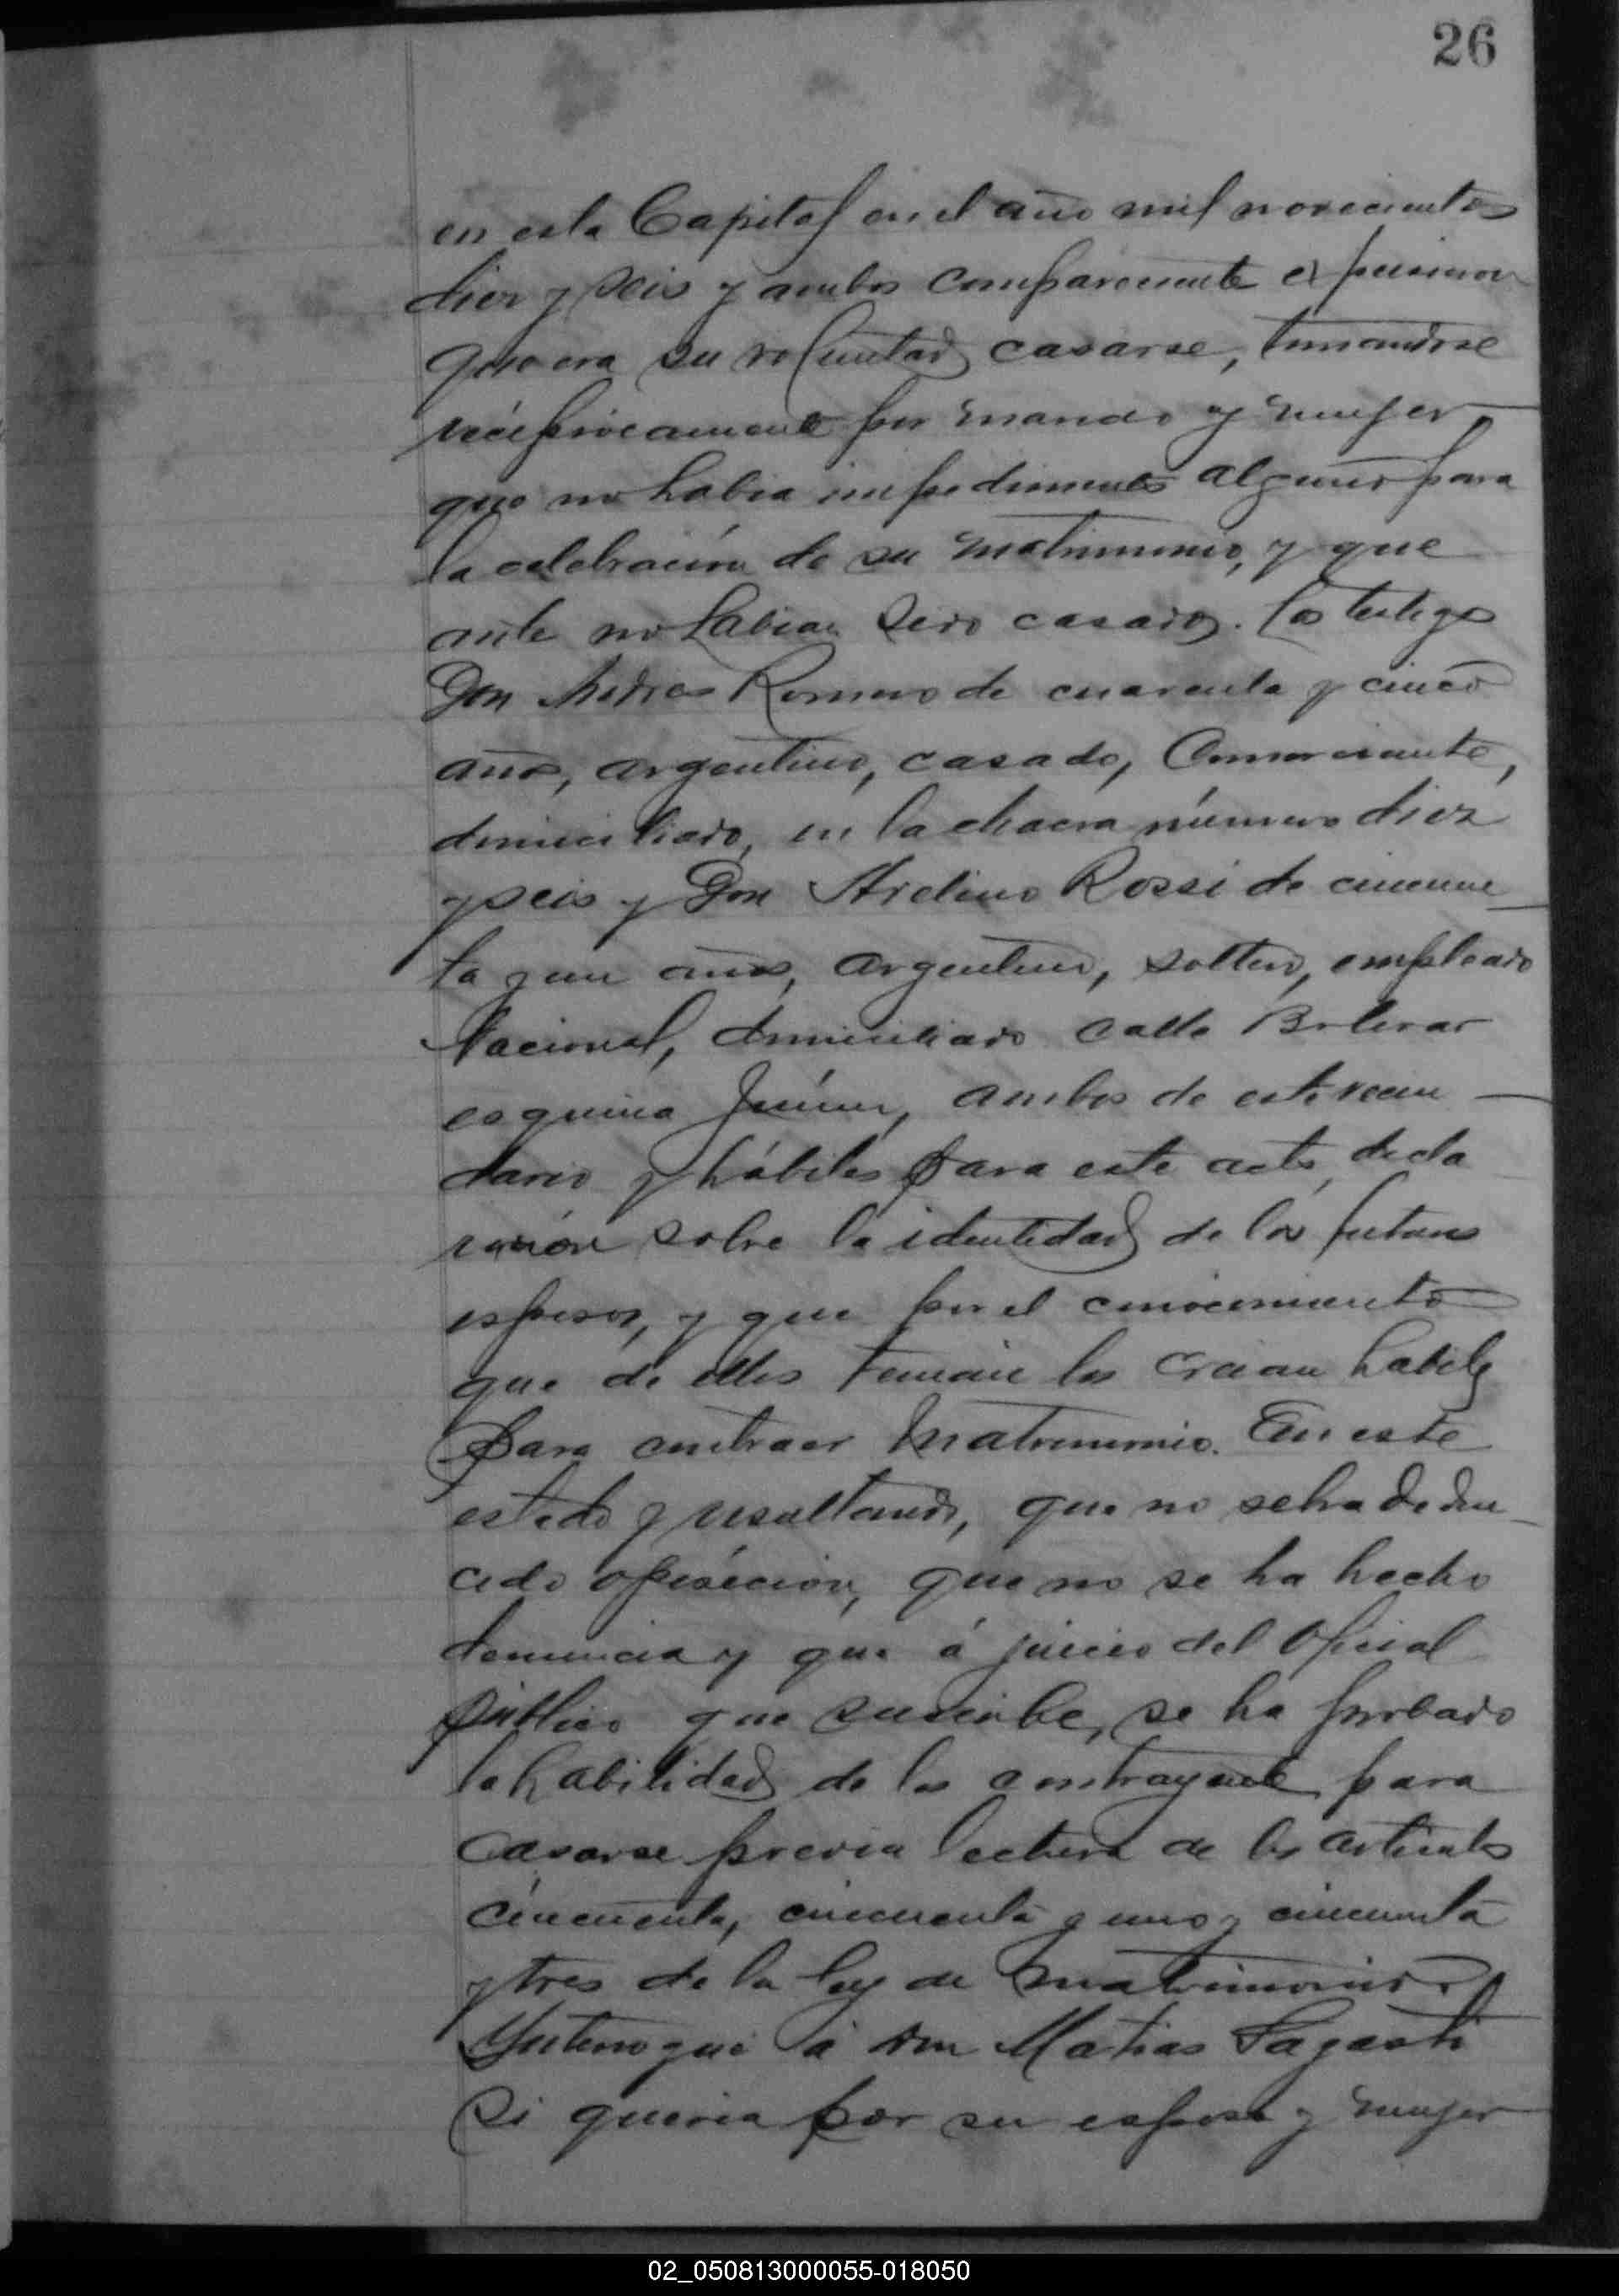 26
en esta Capital en el año mil novecientos
diez y seis y ambos compareciente expusieron
que era su voluntad casarse, tomandose
recíprocamente por marido y mujer
que no habia impedimento alguno para
la celebración de su matrimonio, y que
ante no habian sido casados. Los testigos
Don Andres Romero de cuarenta y cinco
años, argentino, casado, Comerciante,
domiciliado, en la chacra número diez
y seis y Don Avelino Rossi de cincuen_
ta y un años, argentino, soltero, empleado
Nacional, domiciliado calle Bolivar
esquina Junin, ambos de este vecin
dario y hábiles para este acto, decla
raron sobre la identidad de los futuros
esposos, y que por el conocimiento
que de ellos tenian los creian habiles
para contraer Matrimonio. En este
estado y resultando, que no se ha dedu_
cido oposición, que no se ha hecho
denuncia y que á juicio del Oficial
público que suscribe, se ha probado
la habilidad de los contrayente para
casarse previa lectura de los articulos
cincuenta, cincuenta y uno y cincuenta
y tres de la ley de matrimonio.
Interrogué á don Matias Sagasti
si queria por su esposa y mujer
02_050813000055-018050